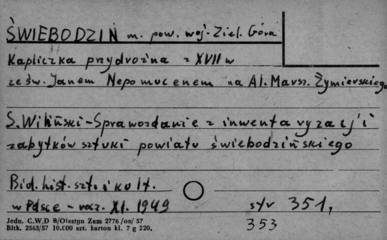 ŚWIEBODZIN m. pow. woj. Ziel. Góra
Kapliczka przydrożna z XVII w
ze św. Janem Nepomucenem na Al. Marsz. Żymierskiego
S. Wiliński - Sprawozdanie z inwentaryzacji
zabytków sztuki powiatu świebodzińskiego
Biul. hist. szt. i kult.
w Polsce - nar. XI. 1949 str 351,
353
Jedn. C.W.D 8/Olsztyn Zam 2776/on/57
Błtk. 2563/57 10.000 szt. karton kl. 7 g 220,